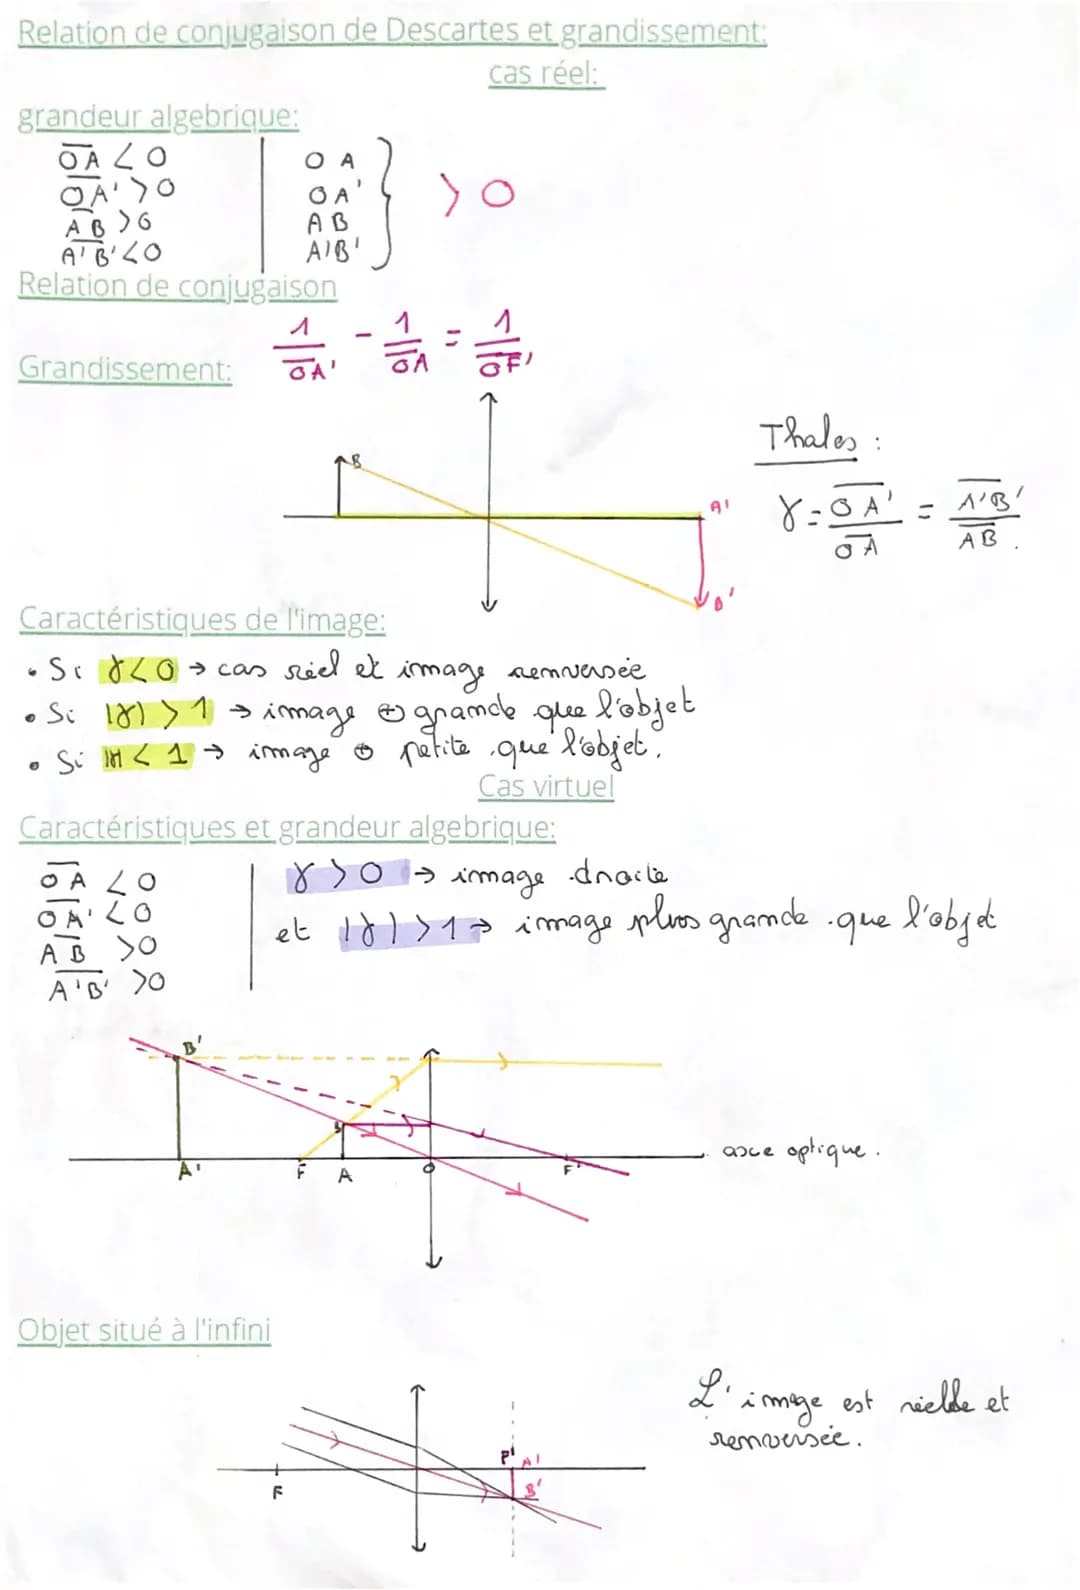 Relation de conjugaison de Descartes et grandissement:
cas réel:
grandeur algebrique:
O̅A̅ < 0 | O A
O̅A̅' > 0 | O A'
A̅B̅ > 0 | A B
A̅'B̅' < 0 | A'B'
} > 0
Relation de conjugaison
1/O̅A̅' - 1/O̅A̅ = 1/O̅F̅'
Grandissement:
B
A'
B'
Thales :
γ = O̅A̅'/O̅A̅ = A̅'B̅'/A̅B̅.
Caractéristiques de l'image:
• Si γ<0 → cas réel et image renversée
• Si |γ| > 1 → image ⊕ grande que l'objet
• Si |γ| < 1 → image ⊕ petite que l'objet.
Cas virtuel
Caractéristiques et grandeur algebrique:
O̅A̅ < 0 | γ > 0 → image droite
O̅A̅' < 0 | et |γ| > 1 → image plus grande que l'objet
A̅B̅ > 0
A̅'B̅' > 0
B'
B
A' F A O F'
axe optique.
Objet situé à l'infini
L'image est réelle et
renversée.
F' A'
F B'